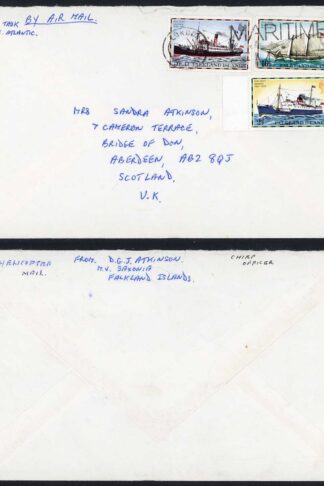 BY AIR MAIL.
TASK
ATLANTIC.
MARITIME
FALKLAND ISLANDS
FALKLAND ISLANDS
FALKLAND ISLANDS
MRS SANDRA ATKINSON,
7 CAMERON TERRACE,
BRIDGE OF DON,
ABERDEEN, AB2 8QJ
SCOTLAND,
U.K.
HELICOPTER
MAIL.
FROM. D.G.J. ATKINSON.
M.V. SAXONIA
FALKLAND ISLANDS.
CHIEF
OFFICER